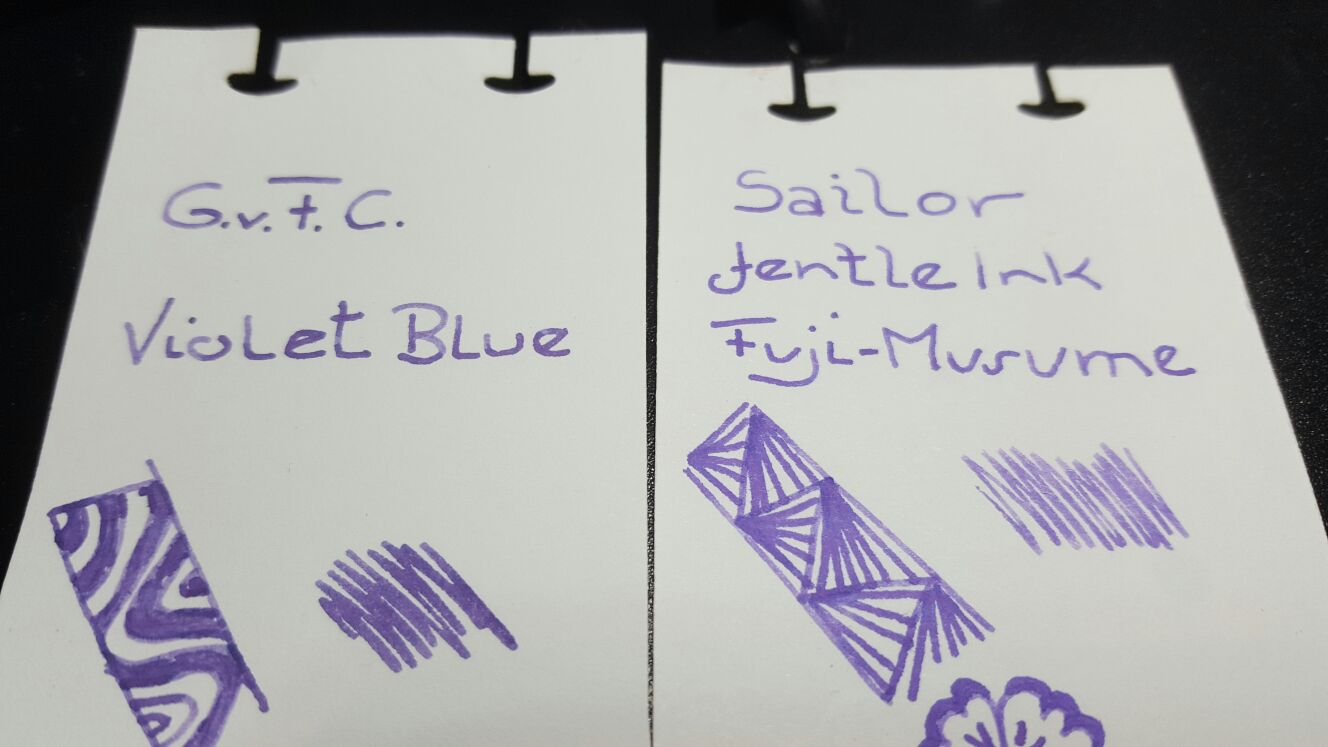 G.v.F.C.
Violet Blue
Sailor
Jentle Ink
Fuji-Musume